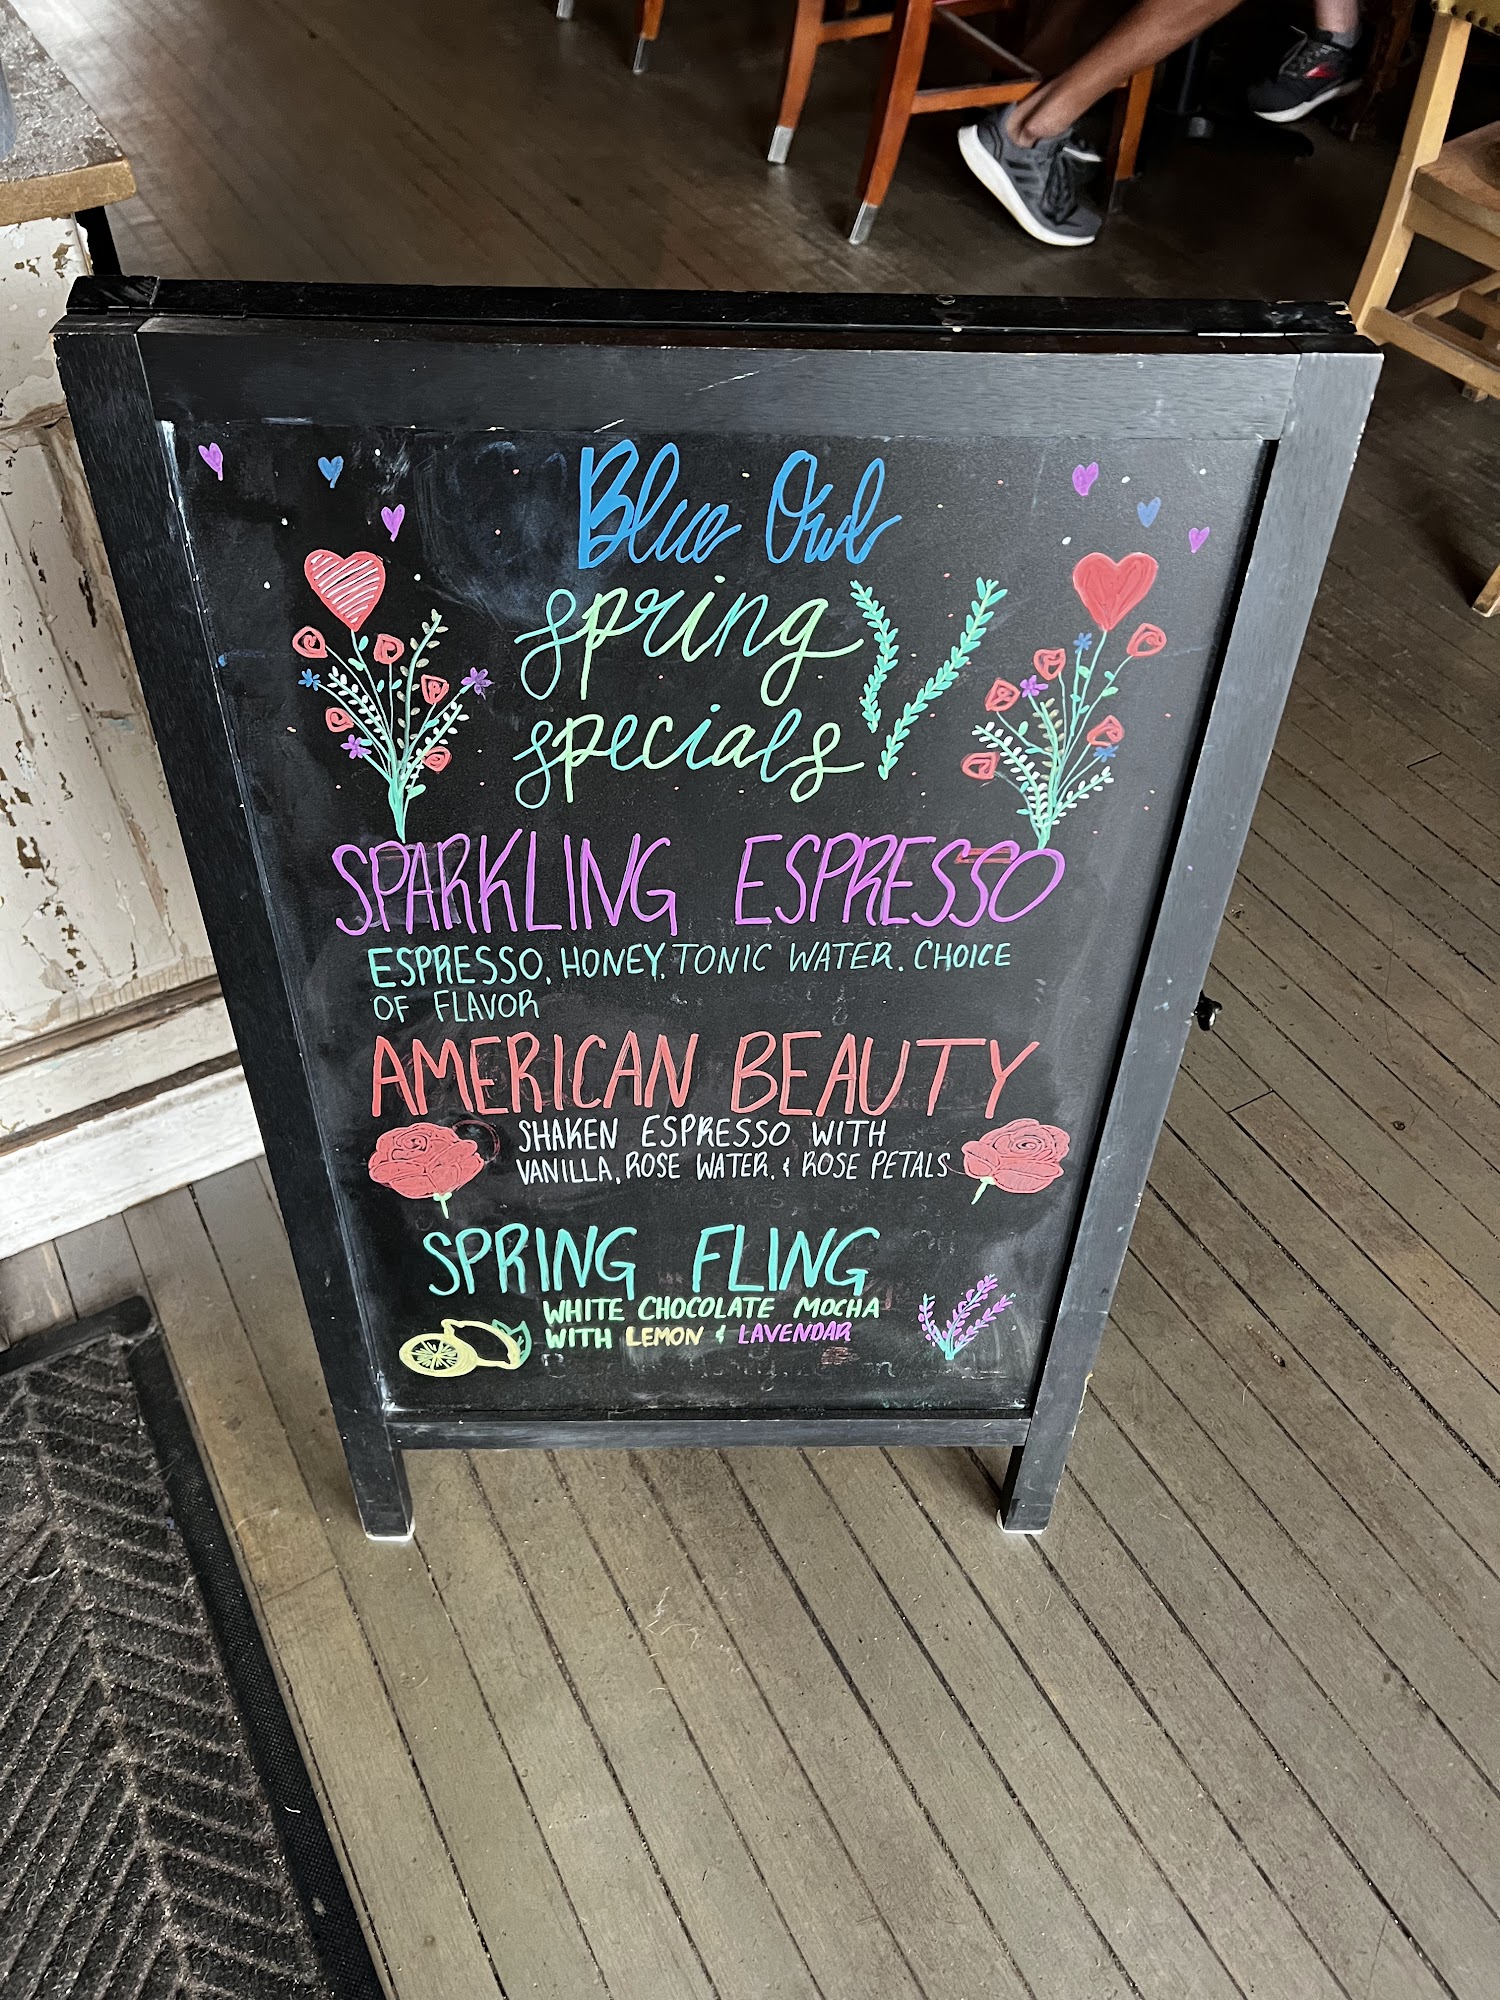 Blue Owl
spring
specials
SPARKLING ESPRESSO
ESPRESSO, HONEY, TONIC WATER. CHOICE
OF FLAVOR
AMERICAN BEAUTY
SHAKEN ESPRESSO WITH
VANILLA, ROSE WATER, & ROSE PETALS
SPRING FLING
WHITE CHOCOLATE MOCHA
WITH LEMON & LAVENDAR